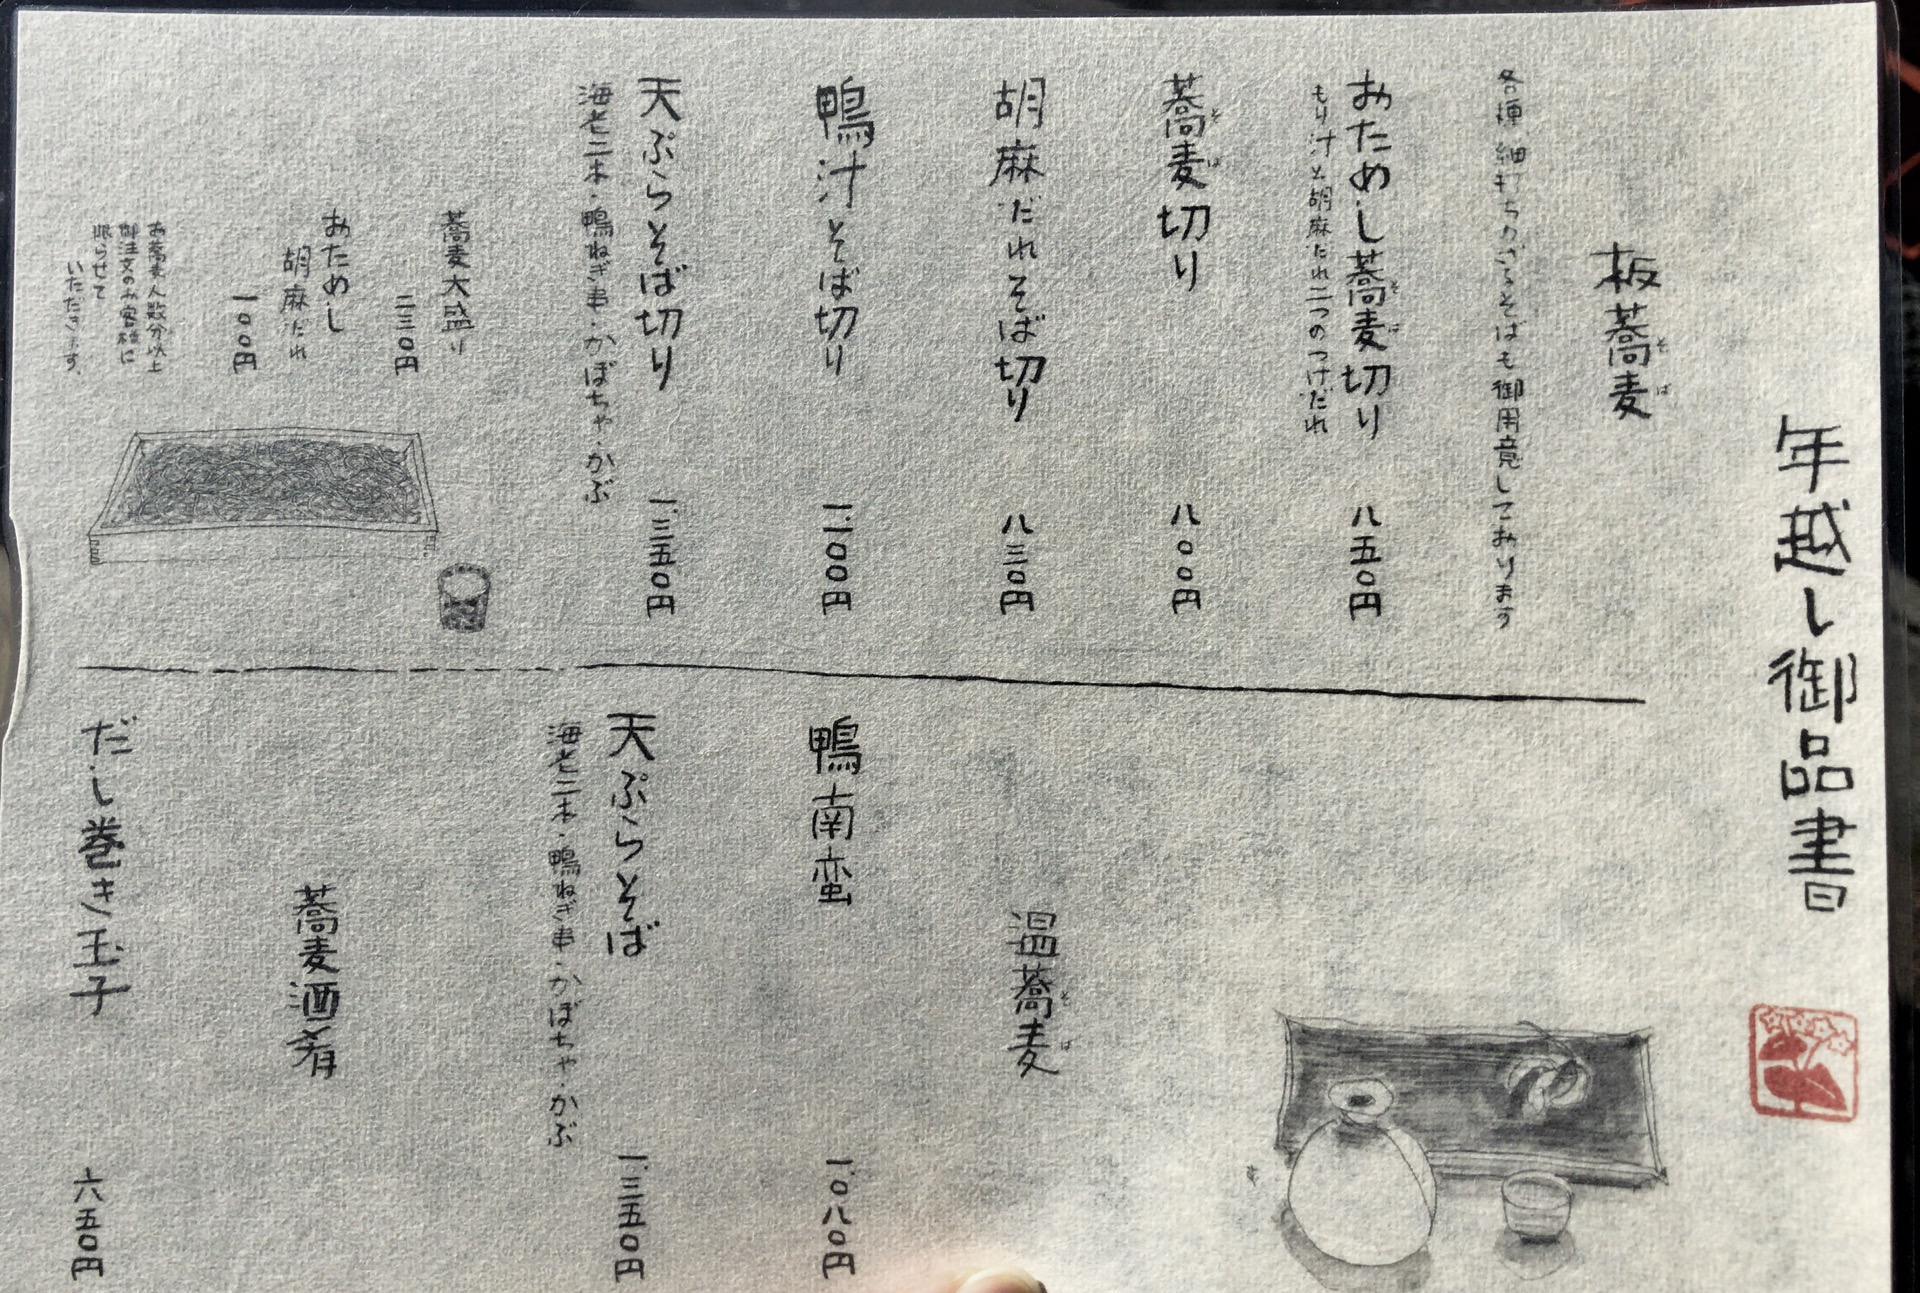 年越し御品書
板蕎麦
そば
各種 細打ちのざるそばも御用意しております
おためし蕎麦切り 八五〇円
そば
もり汁と胡麻だれ二つのつけだれ
蕎麦切り 八〇〇円
そば
胡麻だれそば切り 八三〇円
鴨汁そば切り 一、一〇〇円
天ぷらそば切り 一、三五〇円
海老二本・鴨ねぎ串・かぼちゃ・かぶ
蕎麦大盛り
二三〇円
おためし
胡麻だれ
一〇〇円
お蕎麦人数分以上
御注文のお客様に
限らせて
いただきます。
温蕎麦
そば
鴨南蛮 一、〇八〇円
天ぷらそば 一、三五〇円
海老二本・鴨ねぎ串・かぼちゃ・かぶ
蕎麦酒肴
だし巻き玉子 六五〇円